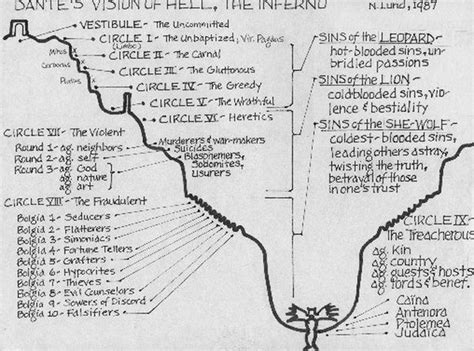 DANTE'S VISION OF HELL, THE INFERNO
N. Lund, 1989
VESTIBULE - The Uncommitted
CIRCLE I - The Unbaptized, Vir. Pagans
(Limbo)
Minos
CIRCLE II - The Carnal
Cerberus
CIRCLE III - The Gluttonous
Plutus
CIRCLE IV - The Greedy
CIRCLE V - The Wrathful
CIRCLE VI - Heretics
CIRCLE VII - The Violent
Round 1 - ag. neighbors
Round 2 - ag. self
Round 3 - ag. God
ag. nature
ag. art
Murderers & war-makers
Suicides
Blasphemers,
Sodomites,
usurers
CIRCLE VIII - The Fraudulent
Bolgia 1 - Seducers
Bolgia 2 - Flatterers
Bolgia 3 - Simoniacs
Bolgia 4 - Fortune Tellers
Bolgia 5 - Grafters
Bolgia 6 - Hypocrites
Bolgia 7 - Thieves
Bolgia 8 - Evil Counselors
Bolgia 9 - Sowers of Discord
Bolgia 10 - Falsifiers
SINS of the LEOPARD -
hot-blooded sins, un-
bridled passions
SINS of the LION -
coldblooded sins, vio-
lence & bestiality
SINS of the SHE-WOLF -
coldest-blooded sins,
leading others astray,
twisting the truth,
betrayal of those
in one's trust
CIRCLE IX -
The Treacherous
ag. Kin
ag. country
ag. guests & hosts
ag. lords & benef.
Caïna
Antenora
Ptolemea
Judaica